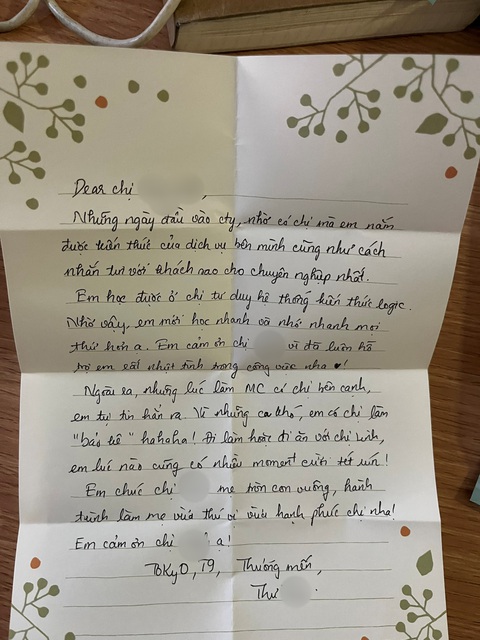 Dear chị ,
Những ngày đầu vào cty, nhờ có chị mà em nắm
được kiến thức của dịch vụ bên mình cũng như cách
nhắn tư với khách nao cho chuyên nghiệp nhất.
Em học được ở chị tư duy hệ thống kiến thức logic.
Nhờ vậy, em mới học nhanh và nhớ nhanh mọi
thứ hơn ạ. Em cảm ơn chị vì đã luôn hỗ
trợ em rất nhiệt tình trong công việc nha ♥!
Ngoài ra, những lúc làm MC có chị bên cạnh,
em tự tin hẳn ra. Vì những ca khó, em có chị làm
"báo kê" hahaha! Đi làm hoặc đi ăn với chị Linh,
em lúc nào cũng có nhiều moment cười tét
Em chúc chị mẹ tròn con vuông, hành
trình làm mẹ vừa thú vị vừa hạnh phúc chị nha!
Em cảm ơn chị ạ!
TOKYO, T9, Thương mến,
Thư